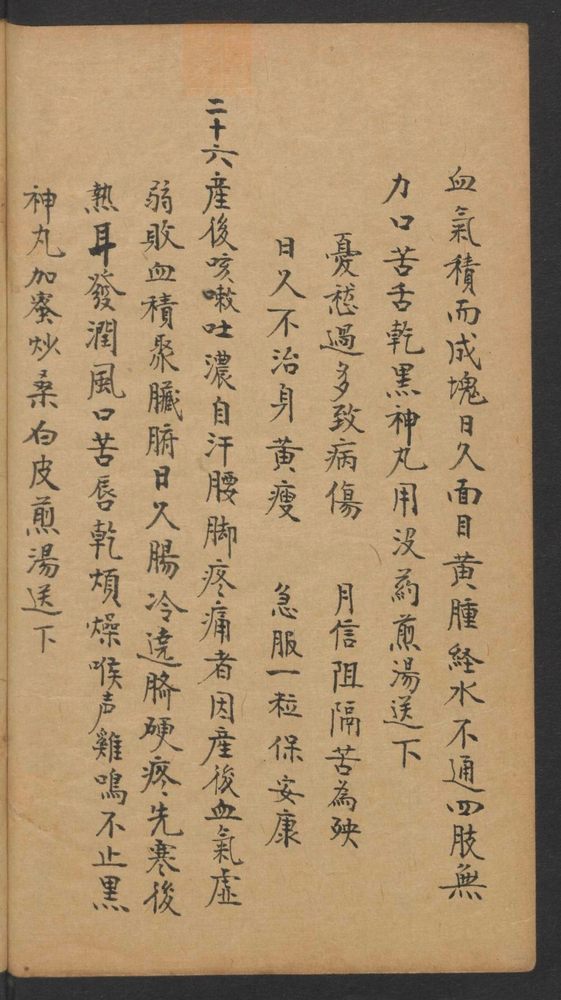 血氣積而成塊日久面目黃腫経水不通四肢無
力口苦舌乾黑神丸用没药煎湯送下
憂愁過多致病傷　月信阻隔苦為殃
日久不治身黃瘦　急服一粒保安康
二十六産後咳嗽吐濃自汗腰脚疼痛者因産後血氣虛
弱敗血積聚臟腑日久腸冷遶臍硬疼先寒後
熱耳發潤風口苦唇乾煩燥喉声雞鳴不止黑
神丸加蜜炒桑白皮煎湯送下